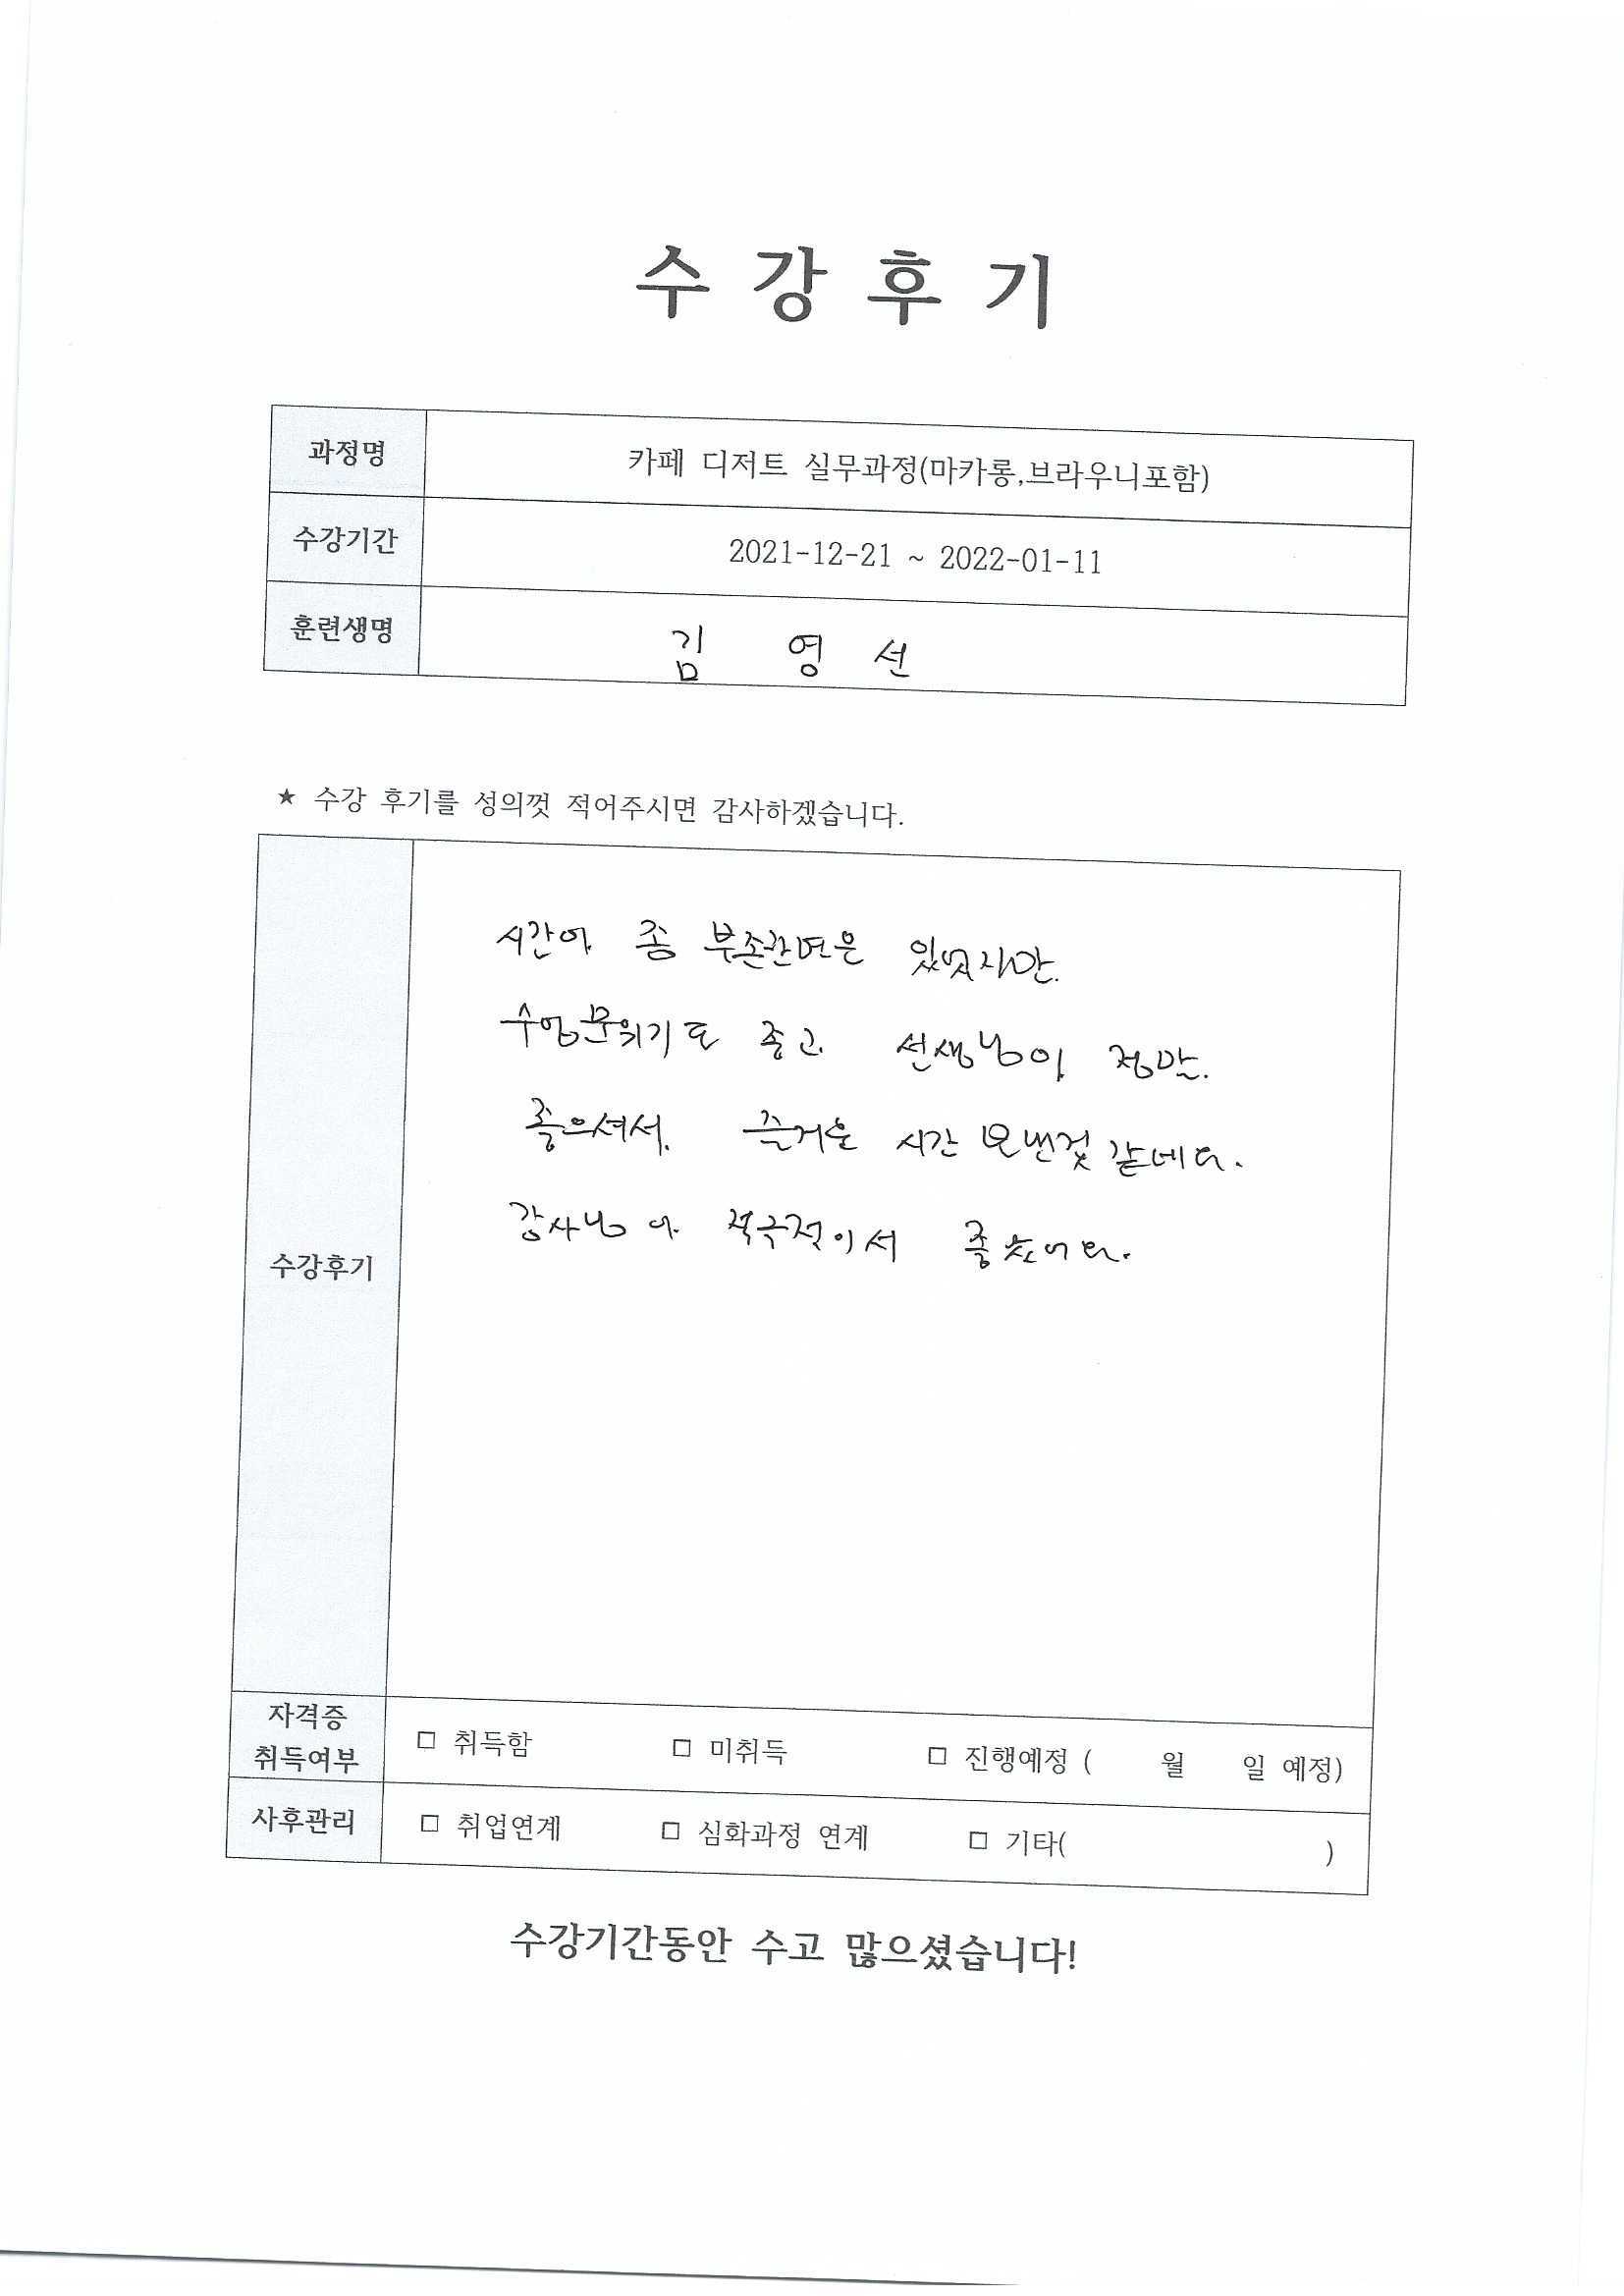 수 강 후 기
과정명 카페 디저트 실무과정(마카롱,브라우니포함)
수강기간 2021-12-21 ~ 2022-01-11
훈련생명 김 영 선
★ 수강 후기를 성의껏 적어주시면 감사하겠습니다.
시간이 좀 부족한면은 있었지만
수업분위기도 좋고 선생님이 정말.
좋으셔서. 즐거운 시간 보낸것 같네요.
강사님이 적극적이서 좋았어요.
수강후기
자격증 취득여부 □ 취득함 □ 미취득 □ 진행예정 ( 월 일 예정)
사후관리 □ 취업연계 □ 심화과정 연계 □ 기타( )
수강기간동안 수고 많으셨습니다!